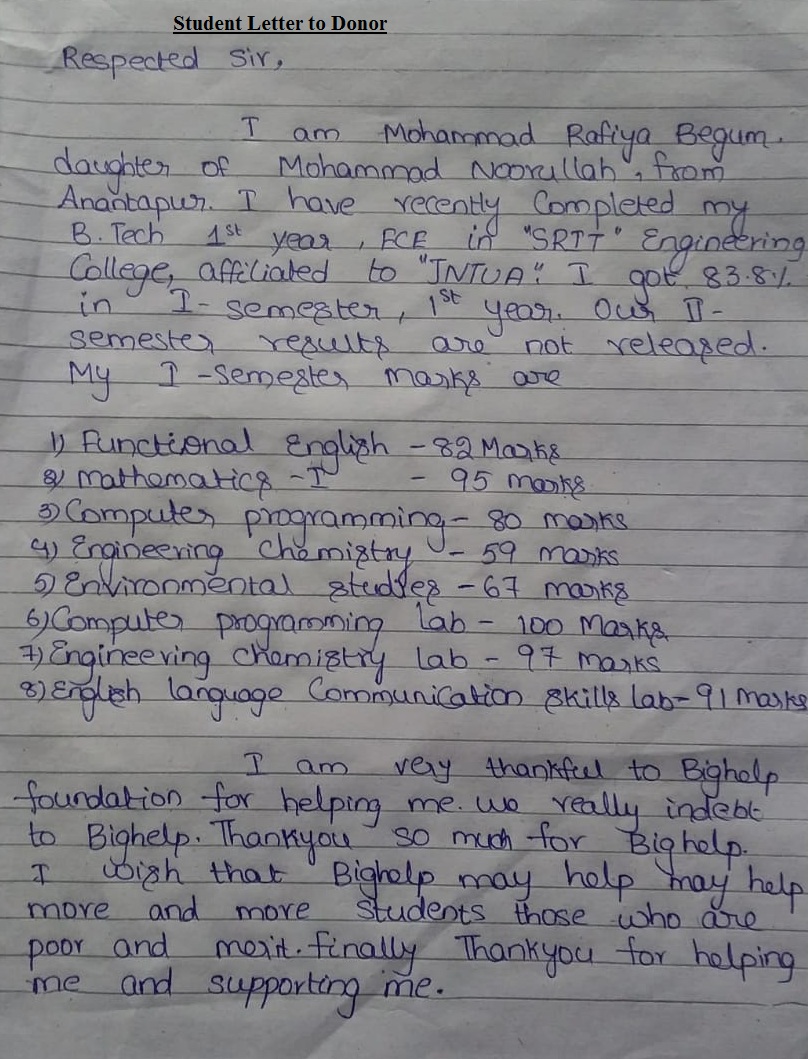 Student Letter to Donor
Respected Sir,
I am Mohammad Rafiya Begum.
daughter of Mohammad Noorullah, from
Anantapur. I have recently Completed my
B. Tech 1st year, ECE in "SRIT" Engineering
College, affiliated to "JNTUA". I got 83.8%
in I-semester, 1st year. Our II-
semester results are not released.
My I-semester marks are
1) Functional English - 82 Marks
2) mathematics - I - 95 marks
3) Computer programming - 80 marks
4) Engineering chemistry - 59 marks
5) Environmental studies - 67 marks
6) Computer programming Lab - 100 Marks
7) Engineering chemistry Lab - 97 marks
8) English language Communication skills lab - 91 marks
I am very thankful to Bighelp
foundation for helping me. we really indebt
to Bighelp. Thankyou so much for Bighelp.
I wish that Bighelp may help may help
more and more students those who are
poor and merit. finally Thankyou for helping
me and supporting me.